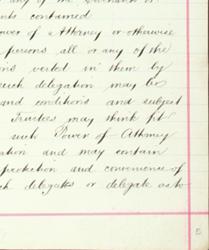 any of the covenants or
nts contained
ower of Attorney or otherwise
persons all or any of the
ons vested in them by
such delegation may be
and conditions and subject
Trustees may think fit
such Power of Attorney
ation and may contain
protection and convenience of
ch delegates or delegate as to